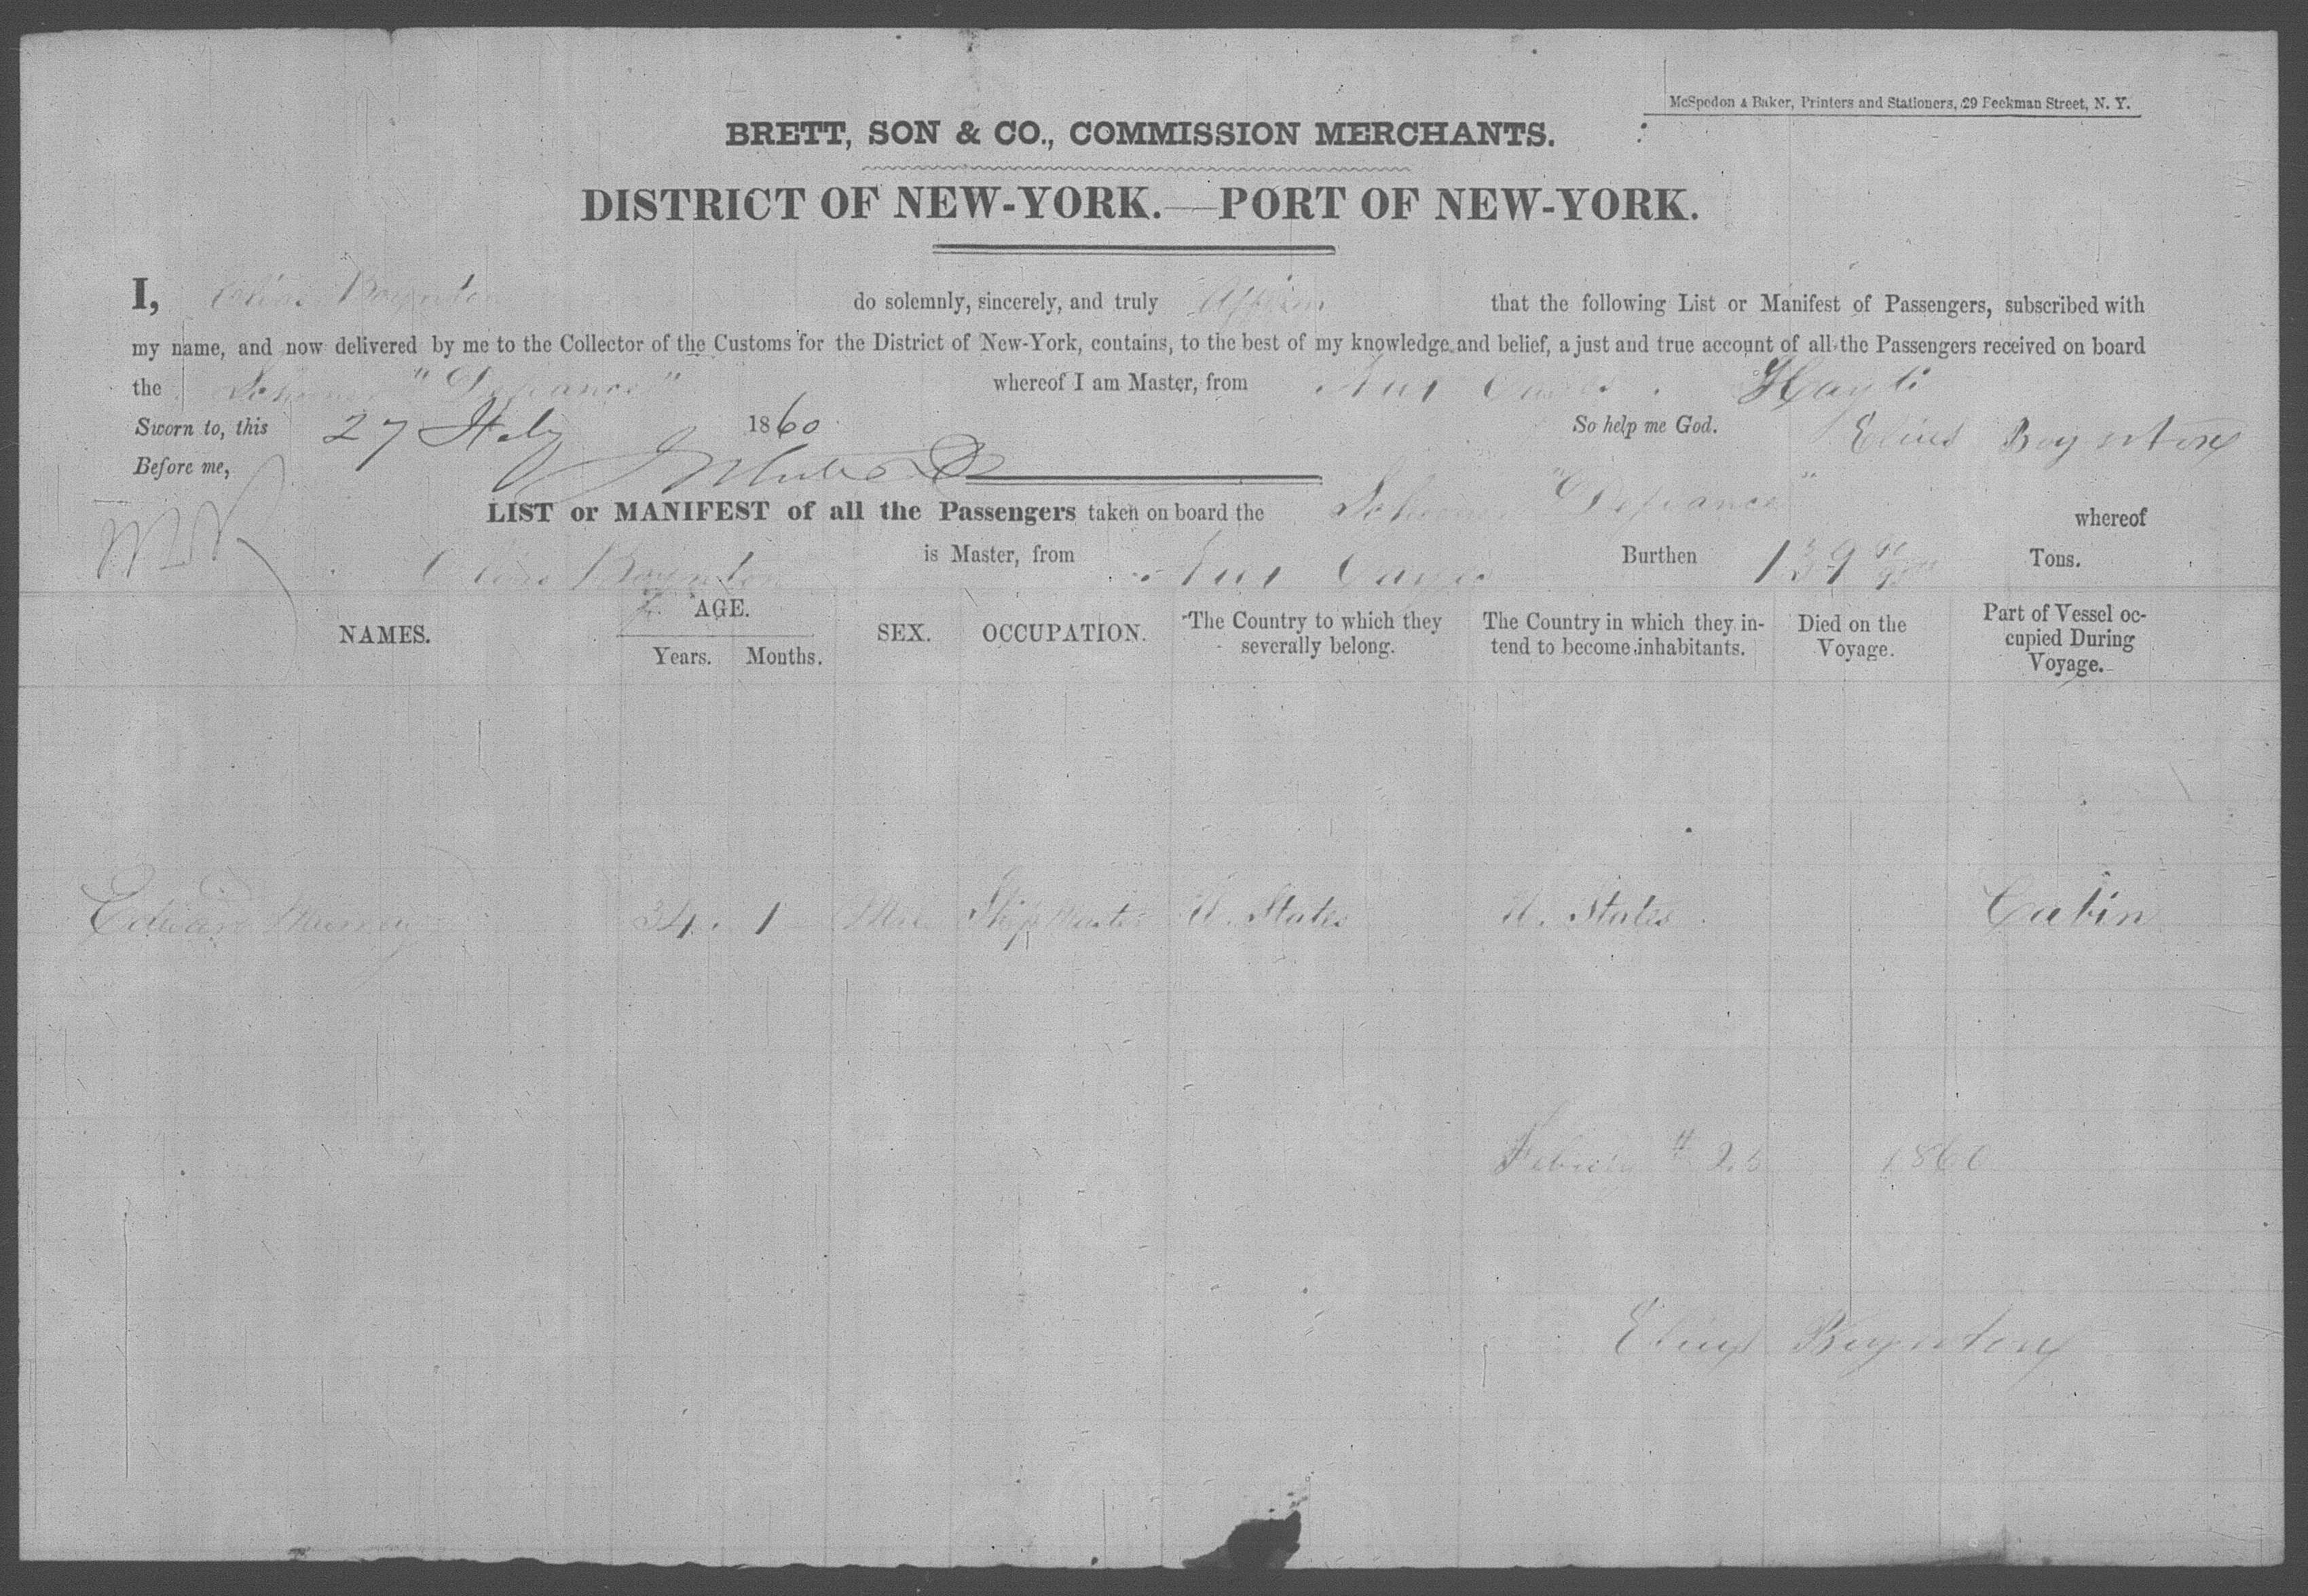 McSpedon & Baker, Printers and Stationers, 29 Beekman Street, N. Y.
BRETT, SON & CO., COMMISSION MERCHANTS.
DISTRICT OF NEW-YORK.—PORT OF NEW-YORK.
I, Elias Boynton do solemnly, sincerely, and truly Affirm that the following List or Manifest of Passengers, subscribed with
my name, and now delivered by me to the Collector of the Customs for the District of New-York, contains, to the best of my knowledge and belief, a just and true account of all the Passengers received on board
the Schooner "Defiance" whereof I am Master, from Aux Cayes Hayti
Sworn to, this 27 Feby 1860 So help me God. Elias Boynton
Before me,
LIST or MANIFEST of all the Passengers taken on board the Schooner "Defiance" whereof
Elias Boynton is Master, from Aux Cayes Burthen 139 Tons.
NAMES. AGE. Years. Months. SEX. OCCUPATION. The Country to which they severally belong. The Country in which they intend to become inhabitants. Died on the Voyage. Part of Vessel occupied During Voyage.
Edward 34 1 Ship Master U. States U. States Cabin
1860
Elias Boynton